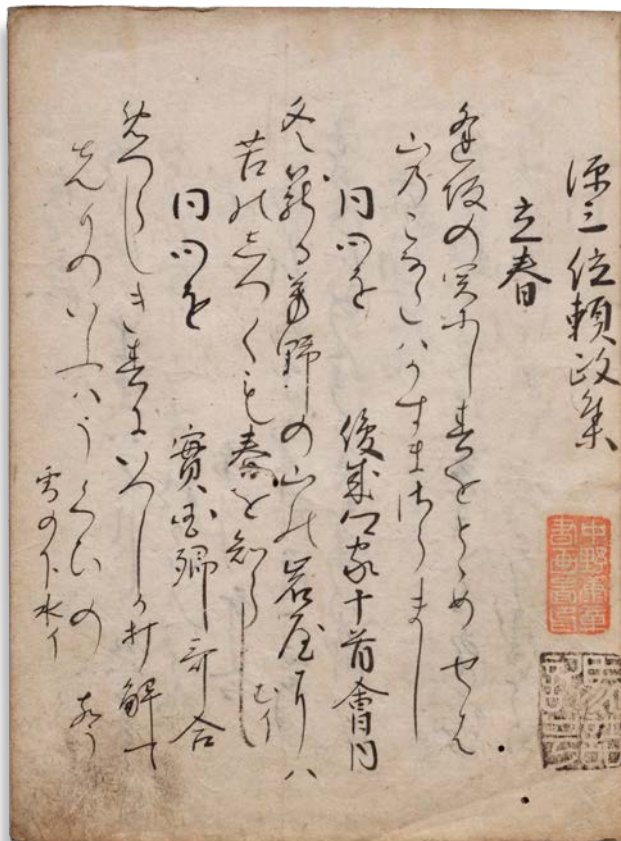 源三位頼政集
立春
逢坂の関にし春をとゝめせは
山乃こなたハかすまさらまし
同心を 俊成卿家十首會同
冬籠る芳野の山の岩屋にハ
苔のしつくも春を知らし
むイ
同心を 實国卿哥合
めつらしき春にいつしか打解て
先ものいふハうくひの
雪の下水イ